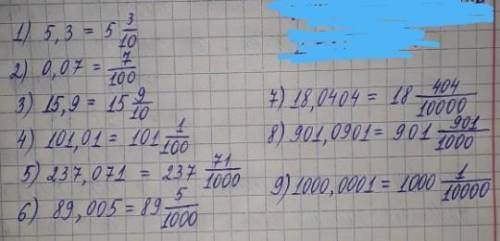 1) 5,3 = 5 3/10
2) 0,07 = 7/100
3) 15,9 = 15 9/10
4) 101,01 = 101 1/100
5) 237,071 = 237 71/1000
6) 89,005 = 89 5/1000
7) 18,0404 = 18 404/10000
8) 901,0901 = 901 901/1000
9) 1000,0001 = 1000 1/10000